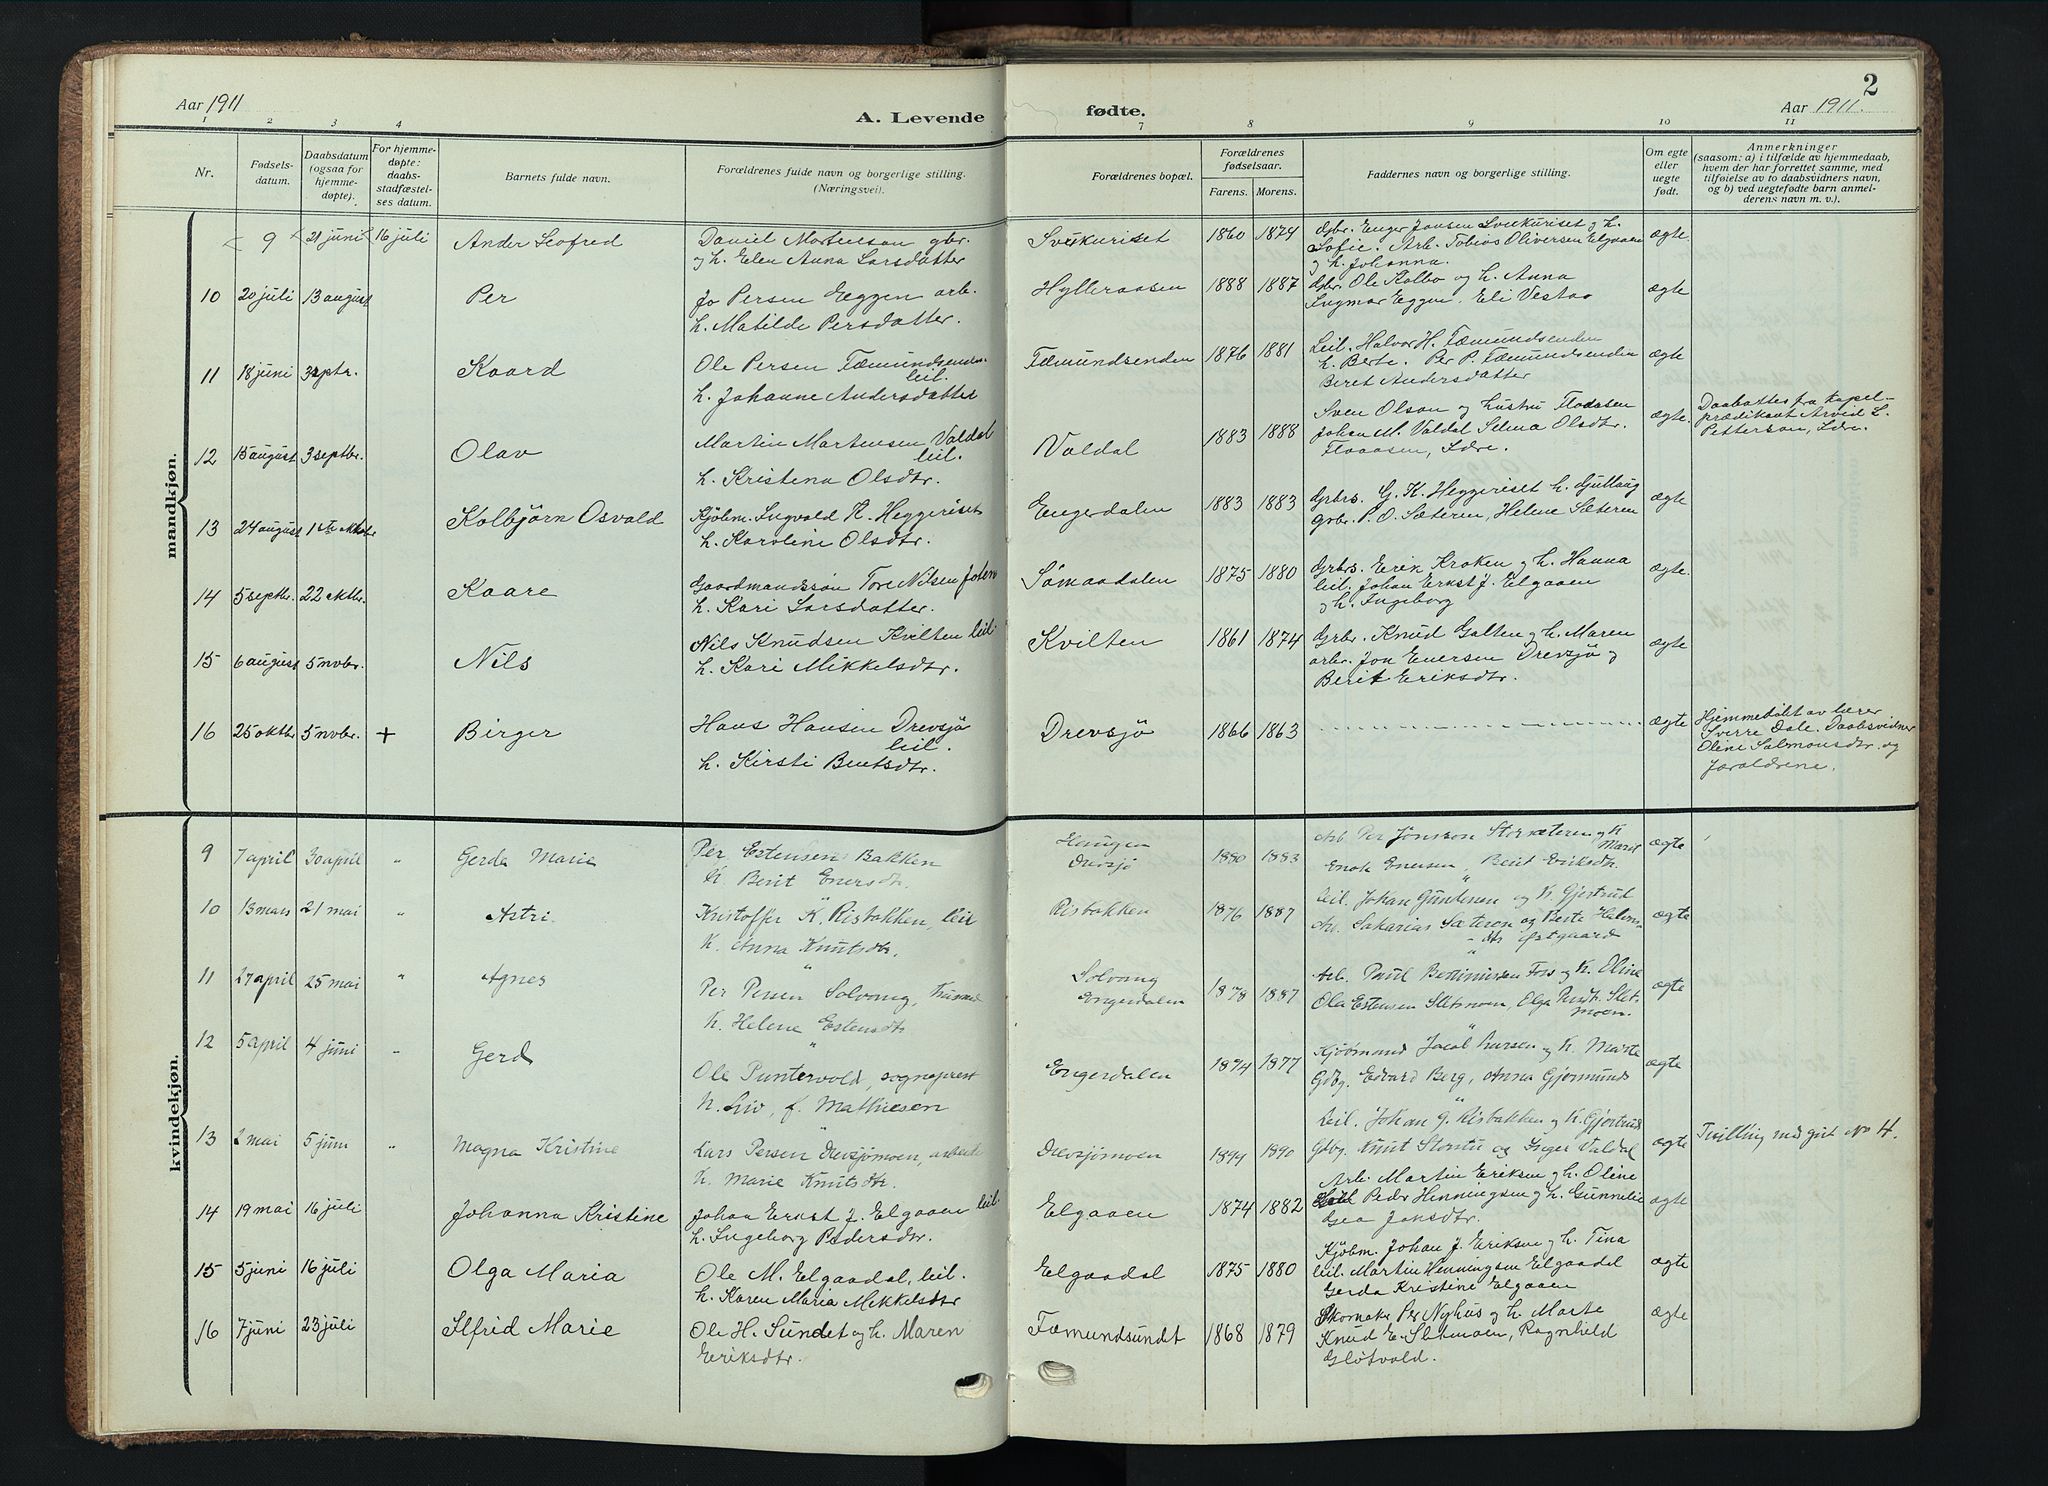 Aar 1911
A. Levende
1 2 3 4
Nr.
Fødsels-
datum.
Daabsdatum
(ogsaa for
hjemme-
døpte).
For hjemme-
døpte:
daabs-
stadfæstel-
ses datum.
Barnets fulde navn.
Forældrenes fulde navn og borgerlige stilling.
(Næringsvei).
2
Aar 1911.
fødte.
7 8 9 10 11
Forældrenes bopæl.
Forældrenes
fødselsaar.
Farens. Morens.
Faddernes navn og borgerlige stilling.
Om egte
eller
uegte
født.
Anmerkninger
(saasom: a) i tilfælde av hjemmedaab,
hvem der har forrettet samme, med
tilføielse av to daabsvidners navn,
og b) ved uegtefødte barn anmel-
derens navn m. v.).
mandkjøn.
9 21 juni 16 juli Ander Leofred
Daniel Mortensen gbr.
og h. Elen Anna Larsdatter
Svukuriset 1860 1874
Gbr. Enger Jonsen Svukuriset og h.
Sofie. Arb. Tobias Oliversen Elgaaen
og h. Johanna.
ægte
10 20 juli 13 august Per
Jo Persen Eggen arb.
h. Matilde Persdatter.
Hylleraasen 1888 1887
Gbr. Ole Kolbo og h. Anna
Ingmar Eggen. Eli Vestaa
ægte
11 18 juni 3 septr. Kaard
Ole Persen Fæmundsenden
leil.
h. Johanne Andersdatter
Fæmundsenden 1876 1881
Leil. Halvor H. Fæmundsenden
h. Berte. Per P. Fæmundsenden
Beret Andersdatter
ægte
12 15 august 3 septbr. Olav
Martin Mortensen Valdal
leil.
h. Kristena Olsdtr.
Valdal 1883 1888
Sven Olson og hustru Floåsen
Johan M. Valdal Selma Olsdtr.
Floaasen, Idre.
ægte.
Daabattes fra kapel-
prædikant Arvid L.
Petterson, Idre.
13 24 august 1ste oktbr Kolbjörn Osvald
Kjøbm. Ingvald K. Heggeriset
h. Karoline Olsdtr.
Engerdalen 1883 1883
Grbrs. G. K. Heggeriset h. Gullaug
Gsbr. P. O. Sæteren, Helene Sæteren
ægte
14 5 septbr. 22 oktbr. Kaare
Gaardmandssøn Tore Nilsen
h. Kari Larsdatter.
Sømaadalen 1875 1880
Grbrs. Erik Kroken og h. Hanna
leil. Johan Ernst J. Elgaaen
og h. Ingeborg
ægte.
15 6 august 5 nvbr. Nils
Nils Knudsen Kvilten leil.
h. Kari Mikkelsdtr.
Kvilten 1861 1874
Grbr. Knud Galten og h. Maren
arbr. Jon Enersen Drevsjö og
Berit Eriksdtr.
ægte
16 25 oktbr 5 nvbr. + Birger
Hans Hansen Drevsjö
leil.
h. Kirsti Bentsdtr.
Drevsjö 1866 1863
ægte
Hjemmedöbt av lærer
Sverre Dale. Daabsvidner
Oline Salmonsdtr. og
foraldrene.
kvindekjøn.
9 7 april 30 april " Gerda Marie
Per Estensen Bakken
K. Berit Enersdtr.
Haugen
Drevsjø 1880 1883
Arb Per Jönsson Storsæteren og K
Marit
Enok Enersen, Berit Eriksdtr.
ægte
10 13 mars 21 mai " Astri
Kristoffer K. Risbakken, leil
K. Anna Knutsdtr.
Risbakken 1876 1887
Leil. Johan Gundersen og K. Gjertrud
Arb. Sakarias Sæteren og Berte Halvors-
dtr Østgaard
ægte
11 27 april 25 mai " Agnes
Per Persen Solvang,
K. Helene Estensdtr
Solvang
Engerdalen 1878 1887
Arb. Paul Berthinussen Foss og K. Oline
Ola Estensen Sletmoen, Olga Slet-
moen.
ægte
12 5 april 4 juni " Gerd
Ole Puntervold, sogneprest
K. Liv, f. Mathiesen
Engerdalen 1874 1877
Kjøbmand Jacob Larsen og K. Marte
Gdbg. Edvard Berg, Anna Gjermunds
ægte
13 2 mai 5 juni " Magna Kristine
Lars Persen Drevsjømoen, arbeider
K. Marie Knutsdtr.
Drevsjømoen 1890
Leil. Johan G. Risbakken og K. Gjertrud
Gdbg. Knut Storstu og Inger Valdal
ægte
Tvilling med gut No 4.
14 19 mai 16 juli Johanna Kristine
Johan Ernst J. Elgaaen leil.
h. Ingeborg Pedersdtr.
Elgaaen 1874 1882
Arb. Martin Eriksen og h. Oline
Peder Henningsen og h. Gunnelie
Gea Jonsdtr.
ægte
15 5 juni 16 juli Olga Maria
Ole M. Elgaadal, leil.
h. Karen Maria Mikkelsdtr
Elgaadal 1875 1880
Kjöbm. Johan J. Eriksen og h. Tina
leil. Martin Henningsen Elgaadal
Gerda Kristine Elgaaen
ægte
16 7 juni 23 juli Ilfrid Marie
Ole H. Sundet og h. Maren
Eriksdtr.
Fæmundsundt 1868 1879
Skomaker Per Nyhus og h. Marte
Knud E. Sletmoen, Ragnhild
Gløtvold.
ægte